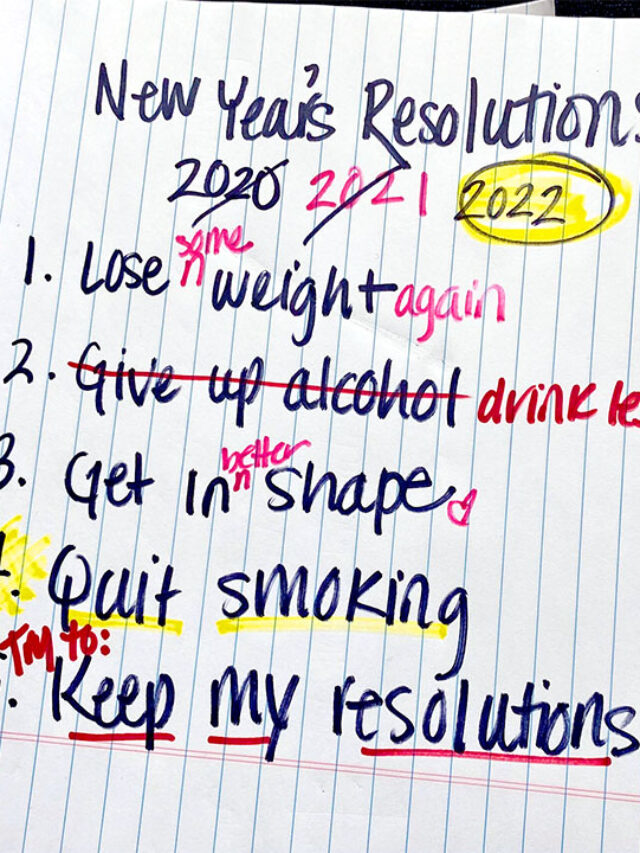 New Year's Resolutions
2020 2021 2022
1. Lose some weight again
2. Give up alcohol drink les
3. Get in better shape
4. Quit smoking
TM to:
. Keep my resolutions